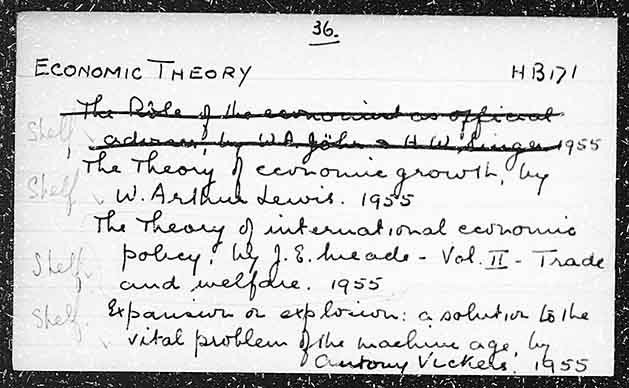 36.
ECONOMIC THEORY HB171
The Rôle of the economist as official
Shelf adviser, by W.A. Jöhr & H.W. Singer 1955
The Theory of economic growth, by
Shelf W. Arthur Lewis. 1955
The Theory of international economic
Shelf. policy, by J.E. Meade - Vol. II - Trade
and welfare. 1955
Shelf. Expansion or explosion: a solution to the
vital problem of the machine age, by
Antony Vickers. 1955